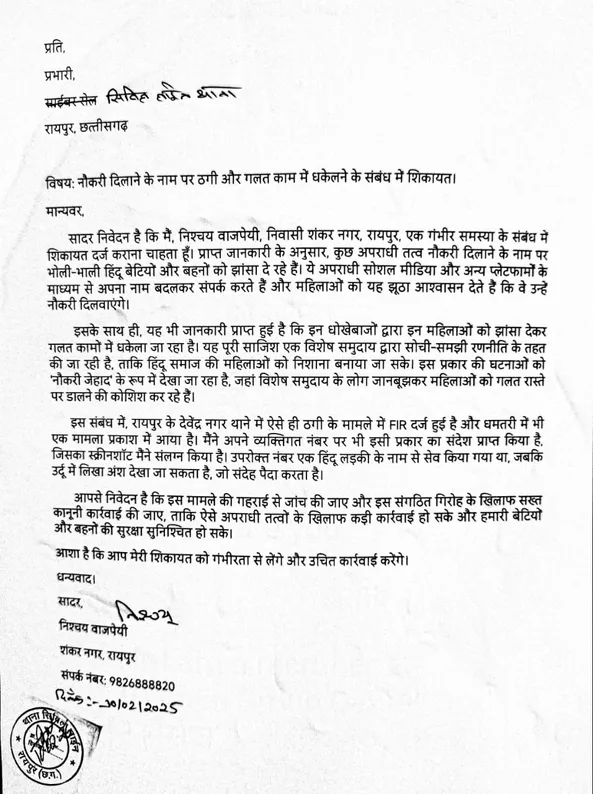 प्रति,
प्रभारी,
साईबर सेल सिविल लाईन थाना
रायपुर, छत्तीसगढ़
विषय: नौकरी दिलाने के नाम पर ठगी और गलत काम में धकेलने के संबंध में शिकायत।
मान्यवर,
सादर निवेदन है कि मैं, निश्चय वाजपेयी, निवासी शंकर नगर, रायपुर, एक गंभीर समस्या के संबंध में
शिकायत दर्ज कराना चाहता हूँ। प्राप्त जानकारी के अनुसार, कुछ अपराधी तत्व नौकरी दिलाने के नाम पर
भोली-भाली हिंदू बेटियों और बहनों को झांसा दे रहे हैं। ये अपराधी सोशल मीडिया और अन्य प्लेटफार्मों के
माध्यम से अपना नाम बदलकर संपर्क करते हैं और महिलाओं को यह झूठा आश्वासन देते हैं कि वे उन्हें
नौकरी दिलवाएंगे।
इसके साथ ही, यह भी जानकारी प्राप्त हुई है कि इन धोखेबाजों द्वारा इन महिलाओं को झांसा देकर
गलत कामों में धकेला जा रहा है। यह पूरी साजिश एक विशेष समुदाय द्वारा सोची-समझी रणनीति के तहत
की जा रही है, ताकि हिंदू समाज की महिलाओं को निशाना बनाया जा सके। इस प्रकार की घटनाओं को
'नौकरी जेहाद' के रूप में देखा जा रहा है, जहां विशेष समुदाय के लोग जानबूझकर महिलाओं को गलत रास्ते
पर डालने की कोशिश कर रहे हैं।
इस संबंध में, रायपुर के देवेंद्र नगर थाने में ऐसे ही ठगी के मामले में FIR दर्ज हुई है और धमतरी में भी
एक मामला प्रकाश में आया है। मैंने अपने व्यक्तिगत नंबर पर भी इसी प्रकार का संदेश प्राप्त किया है,
जिसका स्क्रीनशॉट मैंने संलग्न किया है। उपरोक्त नंबर एक हिंदू लड़की के नाम से सेव किया गया था, जबकि
उर्दू में लिखा अंश देखा जा सकता है, जो संदेह पैदा करता है।
आपसे निवेदन है कि इस मामले की गहराई से जांच की जाए और इस संगठित गिरोह के खिलाफ सख्त
कानूनी कार्रवाई की जाए, ताकि ऐसे अपराधी तत्वों के खिलाफ कड़ी कार्रवाई हो सके और हमारी बेटियों
और बहनों की सुरक्षा सुनिश्चित हो सके।
आशा है कि आप मेरी शिकायत को गंभीरता से लेंगे और उचित कार्रवाई करेंगे।
धन्यवाद।
सादर,
निश्चय
निश्चय वाजपेयी
शंकर नगर, रायपुर
संपर्क नंबर: 9826888820
/02/2025
थाना सिविल लाईन
रायपुर (छ.ग.)